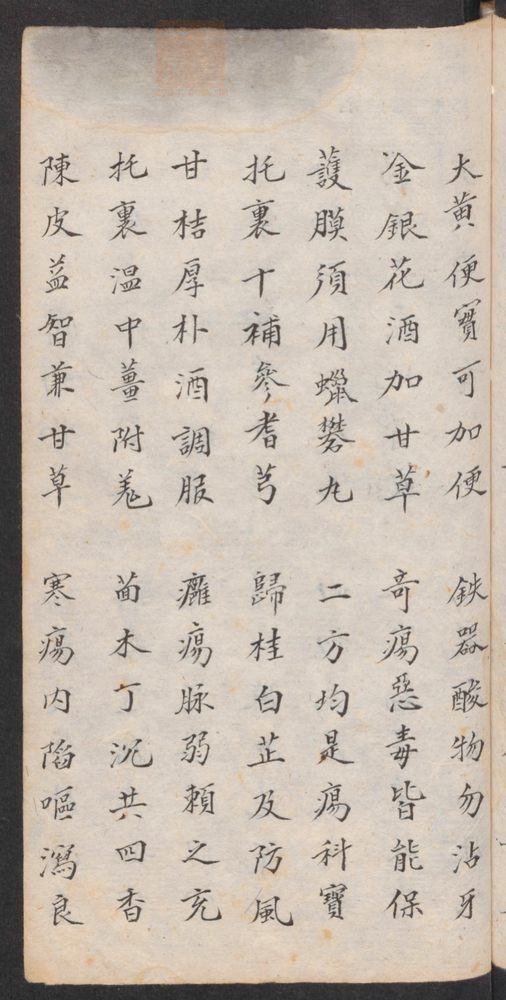 大黄便寳可加便　鉄器酸物勿沾牙
金銀花酒加甘草　奇瘍惡毒皆能保
護膜須用蠟礬丸　二方均是瘍科寳
托裏十補參耆芎　歸桂白芷及防風
甘桔厚朴酒調服　癰瘍脉弱賴之充
托裏温中薑附羌　茴木丁沉共四香
陳皮益智兼甘草　寒瘍内陷嘔瀉良